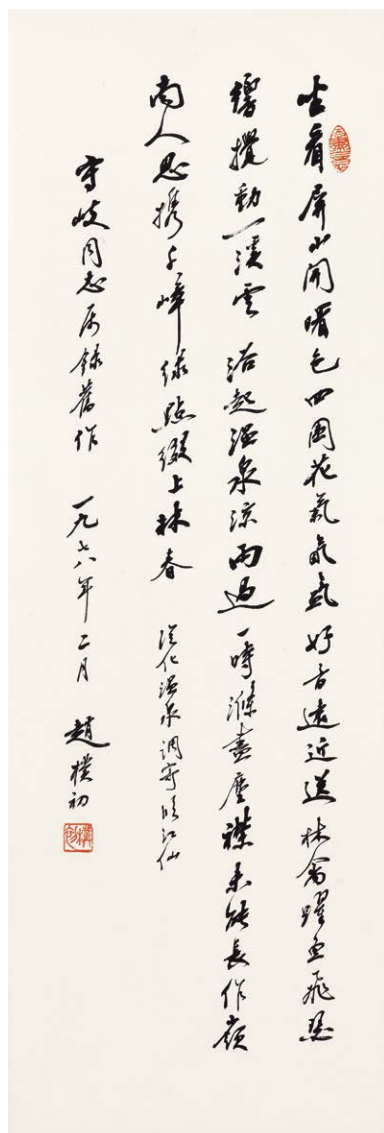 坐看屏山開曙色四圍花氣氤氳好音遠近送林禽躍魚飛瑟
響攪動一溪云浴起溫泉涼雨過一時滌盡塵襟未能長作嶺
南人思攜千嶂綠點綴上林春 從化溫泉調寄臨江仙
守岐同志属錄舊作 一九七八年二月 趙樸初
樸初